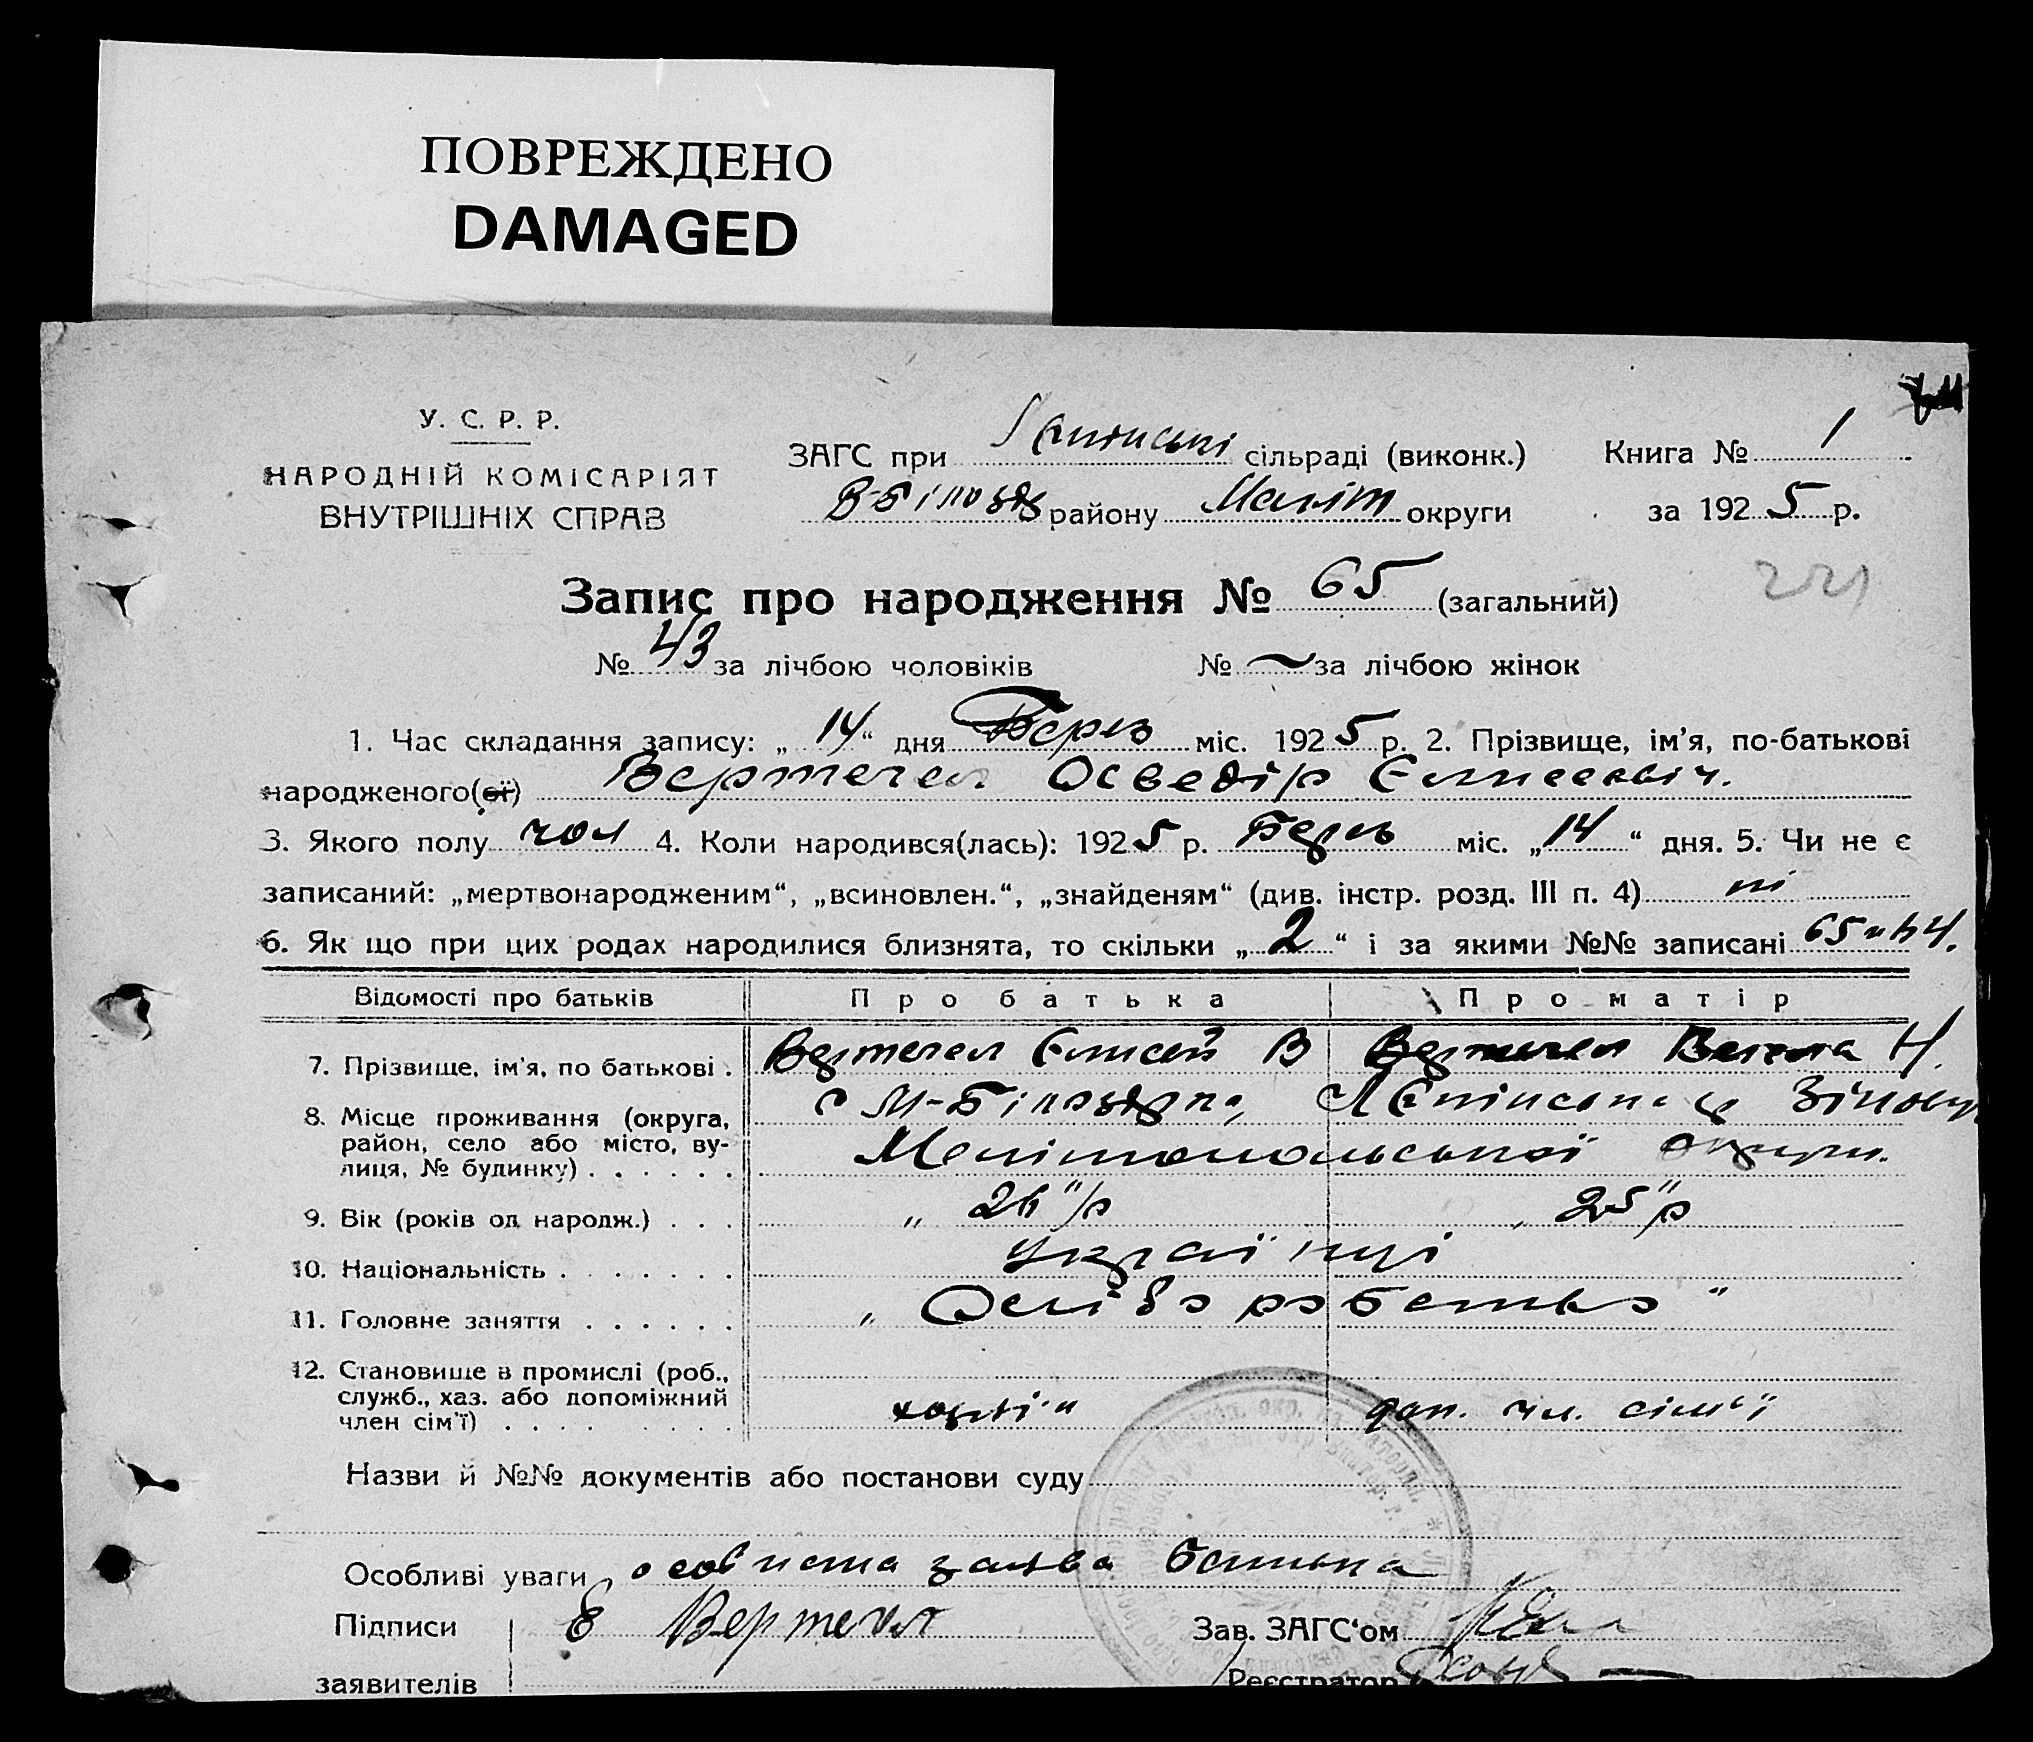 ПОВРЕЖДЕНО
DAMAGED
У. С. Р. Р.
НАРОДНІЙ КОМІСАРІЯТ
ВНУТРІШНІХ СПРАВ
ЗАГС при сільраді (виконк.) Книга № 1
району Меліт округи за 192 5 р.
221
Запис про народження № 65 (загальний)
№ 43 за лічбою чоловіків № за лічбою жінок
1. Час складання запису: „ 14 “ дня Берез міс. 192 5 р. 2. Прізвище, ім'я, по-батькові
народженого(ої) Вертегел Єлисеевіч.
3. Якого полу чол 4. Коли народився(лась): 192 5 р. Берез міс. „ 14 “ дня. 5. Чи не є
записаний: „мертвонародженим“, „всиновлен.“, „знайденям“ (див. інстр. розд. III п. 4) ні
6. Як що при цих родах народилися близнята, то скільки „ 2 “ і за якими №№ записані 65 и 64.
Відомості про батьків Про батька Про матір
7. Прізвище, ім'я, по батькові . Вертегел Єлисей В Вертегел Н.
8. Місце проживання (округа,
район, село або місто, ву-
лиця, № будинку) . . . . . . Мелітопольської округи.
9. Вік (років од народж.) . . . „ 26 "/р „ 25 "/р
10. Національність . . . . . . . Українці
11. Головне заняття . . . . . . „ "
12. Становище в промислі (роб.,
служб., хаз. або допоміжний
член сім'ї) . . . . . . . . доп. чл. сім'ї
Назви й №№ документів або постанови суду
Особливі уваги особиста заява батька
Підписи Вертегел Зав. ЗАГС‘ом
заявителів Реєстратор